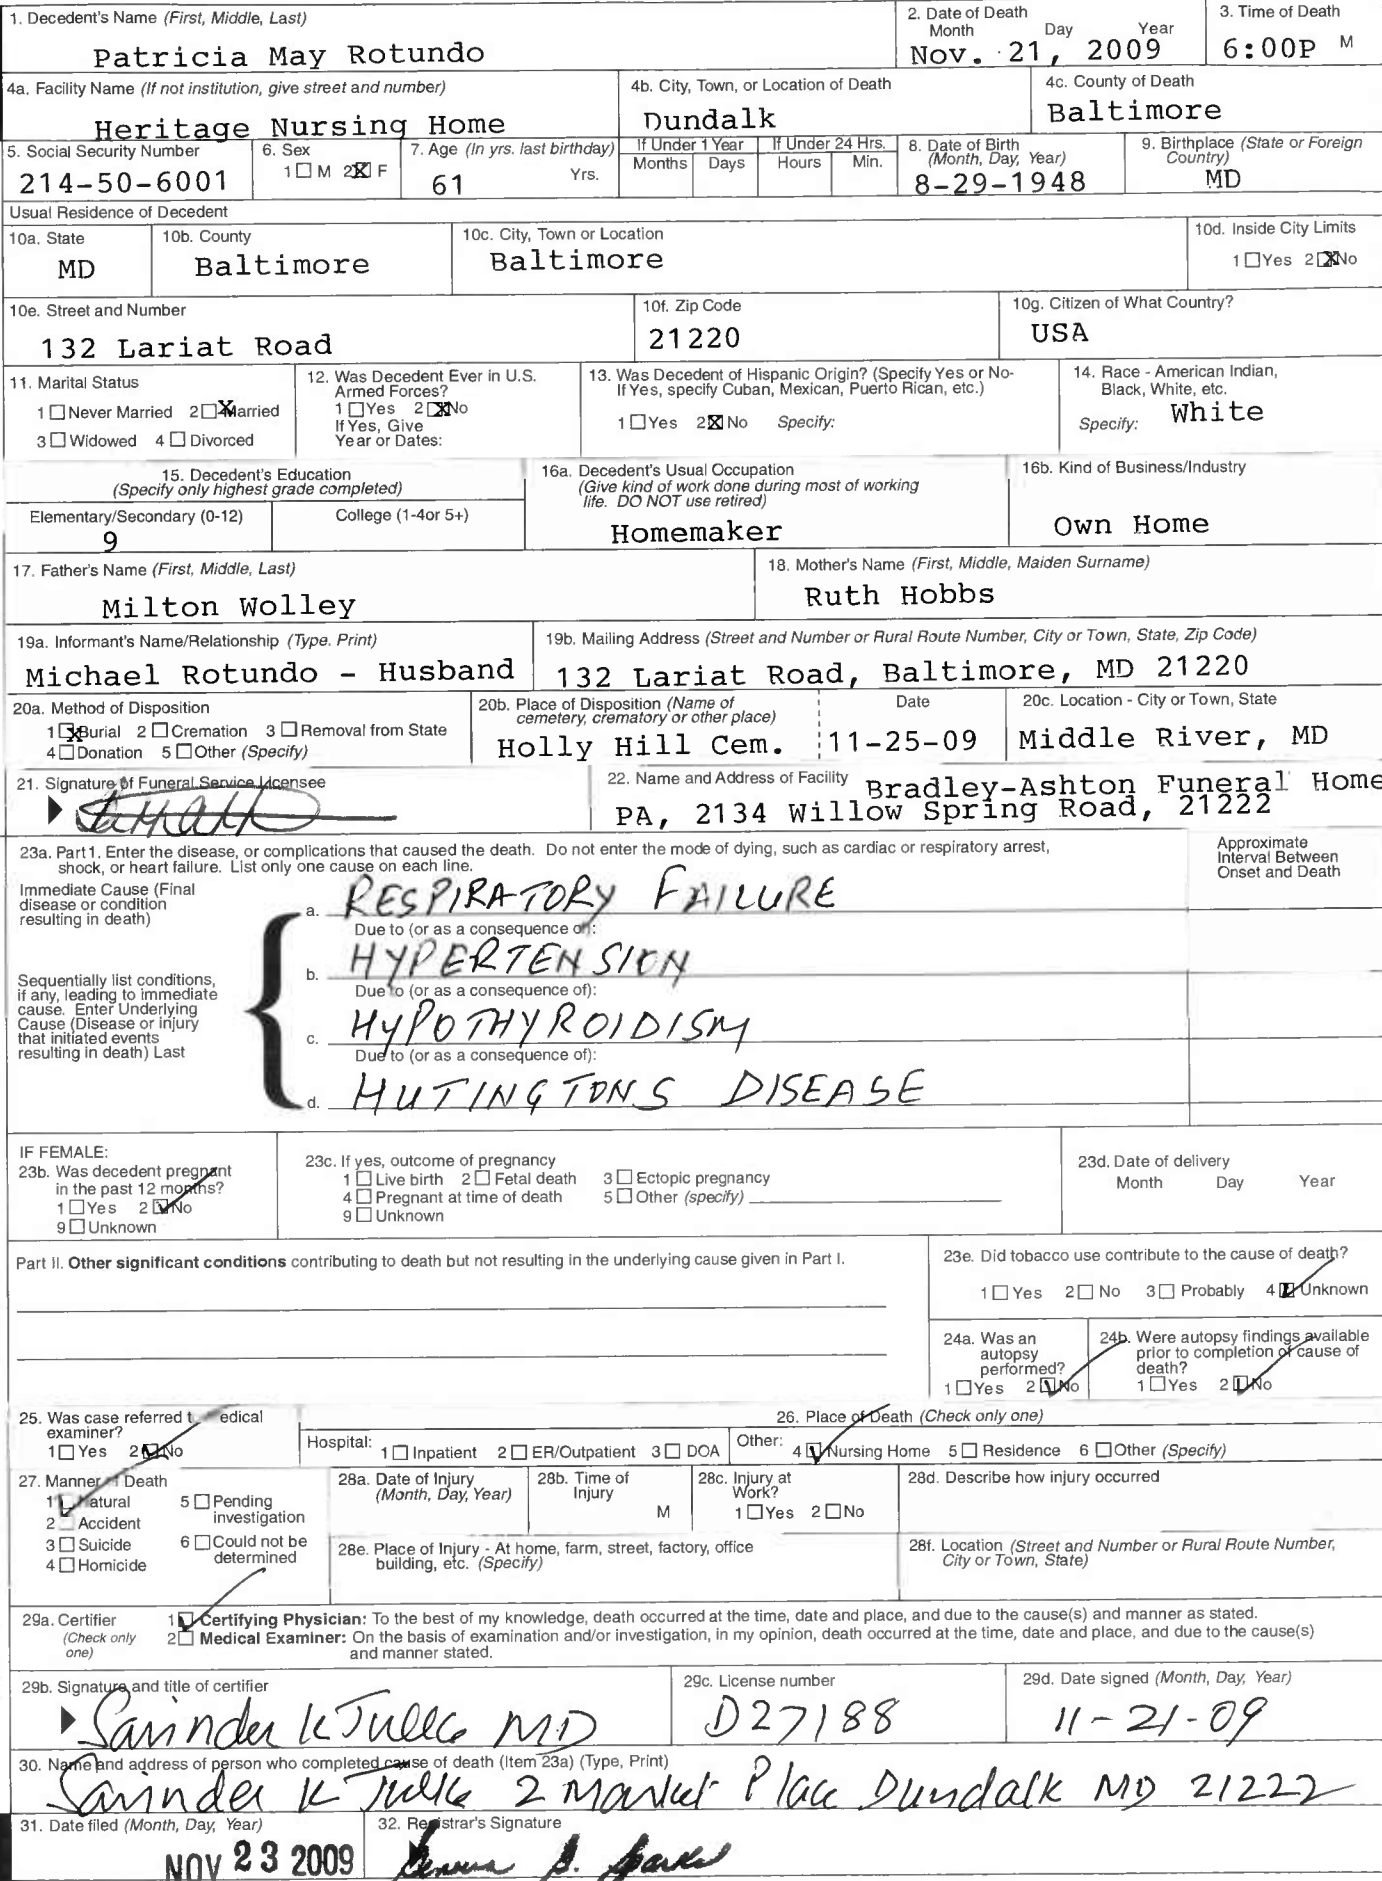 1. Decedent's Name (First, Middle, Last)
Patricia May Rotundo
2. Date of Death
Month Day Year
Nov. 21, 2009
3. Time of Death
6:00P M
4a. Facility Name (If not institution, give street and number)
Heritage Nursing Home
4b. City, Town, or Location of Death
Dundalk
4c. County of Death
Baltimore
5. Social Security Number
214-50-6001
6. Sex
1 M 2 X F
7. Age (In yrs. last birthday)
61 Yrs.
If Under 1 Year
Months Days
If Under 24 Hrs.
Hours Min.
8. Date of Birth
(Month, Day, Year)
8-29-1948
9. Birthplace (State or Foreign
Country)
MD
Usual Residence of Decedent
10a. State
MD
10b. County
Baltimore
10c. City, Town or Location
Baltimore
10d. Inside City Limits
1 Yes 2 X No
10e. Street and Number
132 Lariat Road
10f. Zip Code
21220
10g. Citizen of What Country?
USA
11. Marital Status
1 Never Married 2 X Married
3 Widowed 4 Divorced
12. Was Decedent Ever in U.S.
Armed Forces?
1 Yes 2 X No
If Yes, Give
Year or Dates:
13. Was Decedent of Hispanic Origin? (Specify Yes or No-
If Yes, specify Cuban, Mexican, Puerto Rican, etc.)
1 Yes 2 X No Specify:
14. Race - American Indian,
Black, White, etc.
Specify: White
15. Decedent's Education
(Specify only highest grade completed)
Elementary/Secondary (0-12)
9
College (1-4or 5+)
16a. Decedent's Usual Occupation
(Give kind of work done during most of working
life. DO NOT use retired)
Homemaker
16b. Kind of Business/Industry
Own Home
17. Father's Name (First, Middle, Last)
Milton Wolley
18. Mother's Name (First, Middle, Maiden Surname)
Ruth Hobbs
19a. Informant's Name/Relationship (Type. Print)
Michael Rotundo - Husband
19b. Mailing Address (Street and Number or Rural Route Number, City or Town, State, Zip Code)
132 Lariat Road, Baltimore, MD 21220
20a. Method of Disposition
1 X Burial 2 Cremation 3 Removal from State
4 Donation 5 Other (Specify)
20b. Place of Disposition (Name of
cemetery, crematory or other place)
Holly Hill Cem.
Date
11-25-09
20c. Location - City or Town, State
Middle River, MD
21. Signature of Funeral Service Licensee
22. Name and Address of Facility Bradley-Ashton Funeral Home
PA, 2134 Willow Spring Road, 21222
23a. Part 1. Enter the disease, or complications that caused the death. Do not enter the mode of dying, such as cardiac or respiratory arrest,
shock, or heart failure. List only one cause on each line.
Approximate
Interval Between
Onset and Death
Immediate Cause (Final
disease or condition
resulting in death)
a. RESPIRATORY FAILURE
Due to (or as a consequence of):
b. HYPERTENSION
Sequentially list conditions,
if any, leading to immediate
cause. Enter Underlying
Cause (Disease or injury
that initiated events
resulting in death) Last
Due to (or as a consequence of):
c. HYPOTHYROIDISM
Due to (or as a consequence of):
d. HUTINGTONS DISEASE
IF FEMALE:
23b. Was decedent pregnant
in the past 12 months?
1 Yes 2 No
9 Unknown
23c. If yes, outcome of pregnancy
1 Live birth 2 Fetal death 3 Ectopic pregnancy
4 Pregnant at time of death 5 Other (specify)
9 Unknown
23d. Date of delivery
Month Day Year
Part II. Other significant conditions contributing to death but not resulting in the underlying cause given in Part I.
23e. Did tobacco use contribute to the cause of death?
1 Yes 2 No 3 Probably 4 Unknown
24a. Was an
autopsy
performed?
1 Yes 2 No
24b. Were autopsy findings available
prior to completion of cause of
death?
1 Yes 2 No
25. Was case referred edical
examiner?
1 Yes 2 No
26. Place of Death (Check only one)
Hospital: 1 Inpatient 2 ER/Outpatient 3 DOA Other: 4 Nursing Home 5 Residence 6 Other (Specify)
27. Manner of Death
1 Natural 5 Pending
investigation
2 Accident
3 Suicide 6 Could not be
determined
4 Homicide
28a. Date of Injury
(Month, Day, Year)
28b. Time of
Injury
M
28c. Injury at
Work?
1 Yes 2 No
28d. Describe how injury occurred
28e. Place of Injury - At home, farm, street, factory, office
building, etc. (Specify)
28f. Location (Street and Number or Rural Route Number,
City or Town, State)
29a. Certifier
(Check only
one)
1 Certifying Physician: To the best of my knowledge, death occurred at the time, date and place, and due to the cause(s) and manner as stated.
2 Medical Examiner: On the basis of examination and/or investigation, in my opinion, death occurred at the time, date and place, and due to the cause(s)
and manner stated.
29b. Signature and title of certifier
Savinder K Julka MD
29c. License number
D27188
29d. Date signed (Month, Day, Year)
11-21-09
30. Name and address of person who completed cause of death (Item 23a) (Type, Print)
Savinder K Julka 2 Market Place Dundalk MD 21222
31. Date filed (Month, Day, Year)
NOV 23 2009
32. Registrar's Signature